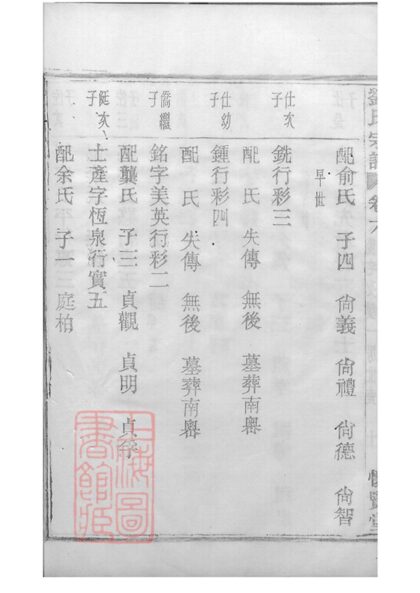 劉氏宗譜 卷八
配俞氏 子四 尙義 尙禮 尙德 尙智
早世
仕次子
銑行彩三
配 氏 失傳 無後 墓葬南𡼏
仕幼子
鍾行彩四
配 氏 失傳 無後 墓葬南𡼏
喬繼子
銘字美英行彩二
配龔氏 子三 貞觀 貞明 貞孚
廷次子
士產字恆泉行實五
配余氏 子一 庭柏
上海圖書館藏